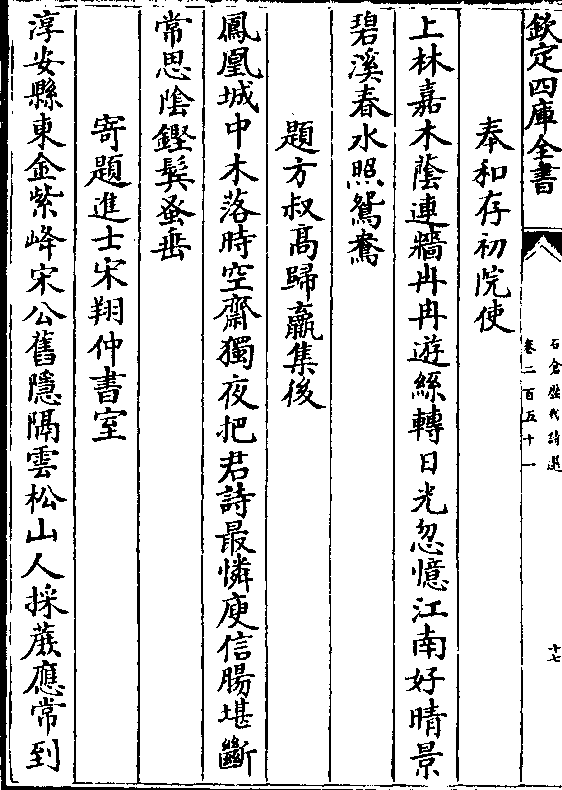 欽定四庫全書
石倉歷代詩選
卷二百五十一
十七
奉和存初院使
上林嘉木蔭連牆冉冉遊絲轉日光忽憶江南好晴景
碧溪春水照鴛鴦
題方叔高歸羸集後
鳳凰城中木落時空齋獨夜把君詩最憐庾信腸堪斷
常思陰鏗鬂蚤垂
寄題進士宋翔仲書室
淳安縣東金紫峰宋公舊隱隔雲松山人採蕨應常到